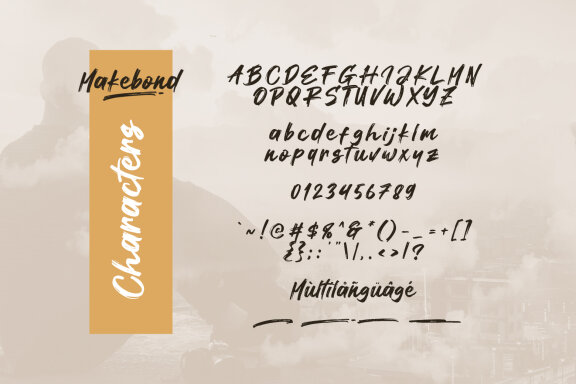 Makebond
Characters
ABCDEFGHIJKLMN
OPQRSTUVWXYZ
abcdefghijklm
nopqrstuvwxyz
0123456789
`~!@#$%^&*()-_=+[]
{};:'"\|,.<>/?
Mùltílàñgüâgé